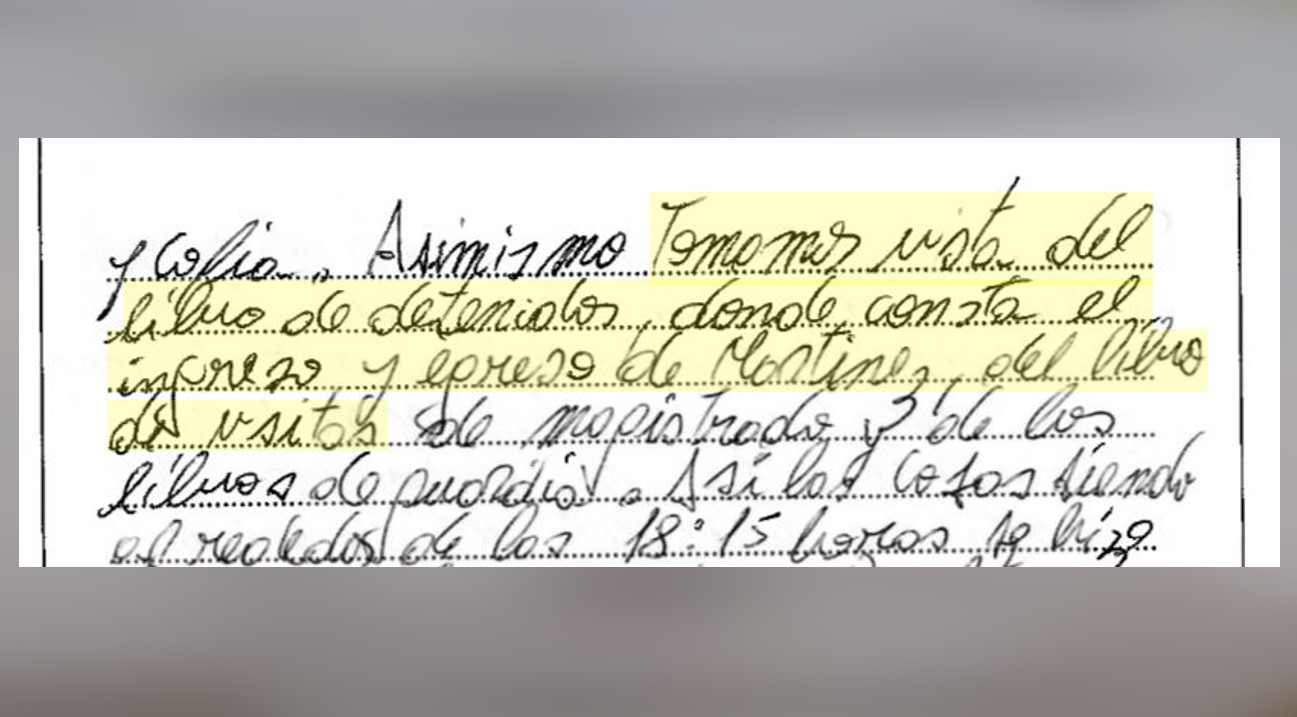 y Colia. Asimismo Tomamos vista del
libro de detenidos, donde consta el
ingreso y egreso de Martinez, del libro
de visitas de magistrado y de los
libros de guardia. Así las cosas siendo
alrededor de las 18:15 horas se hizo